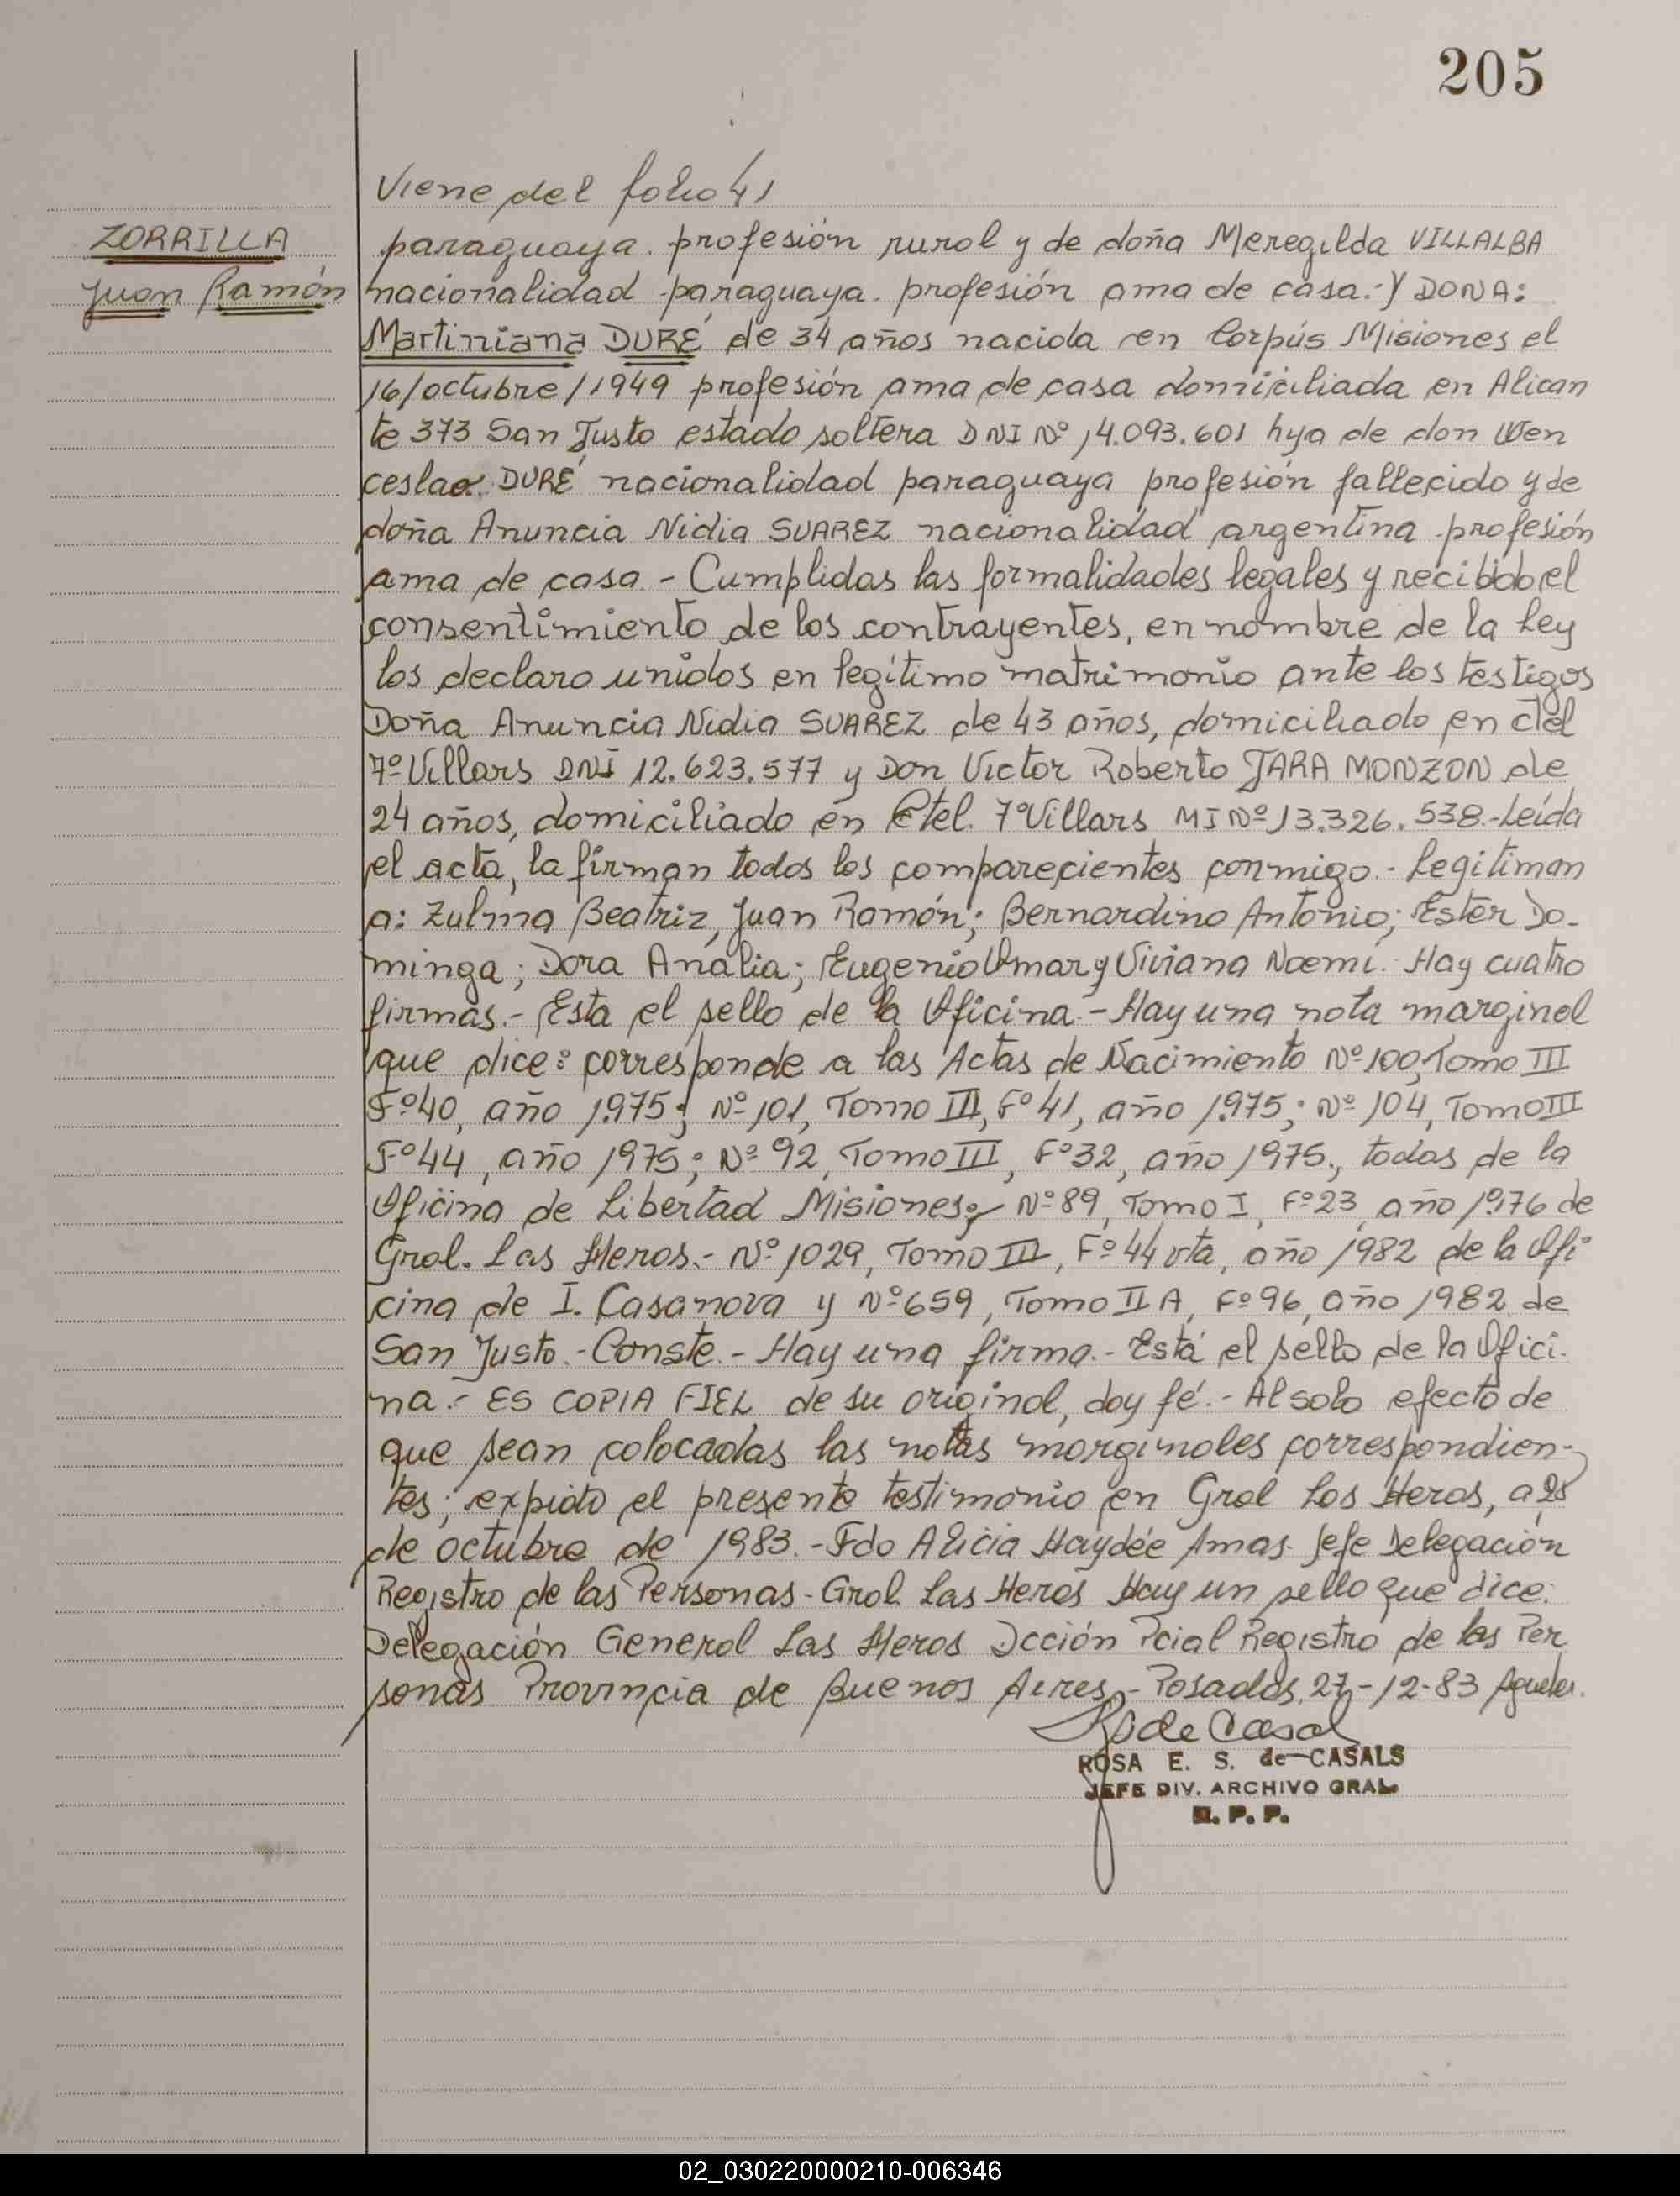 205
Viene del folio 41
ZORRILLA
Juan Ramón
paraguaya. profesión rural y de doña Meregilda VILLALBA
nacionalidad paraguaya. profesión ama de casa.- Y DONA:
Martiniana DURÉ, de 34 años nacida en Corpús Misiones el
16/octubre/1949 profesión ama de casa domiciliada en Alican
te 373 San Justo estado soltera DNI Nº 14.093.601 hija de don Wen
ceslao. DURÉ nacionalidad paraguaya profesión fallecido y de
doña Anuncia Nidia SUAREZ nacionalidad argentina profesión
ama de casa.- Cumplidas las formalidades legales y recibido el
consentimiento de los contrayentes, en nombre de la Ley
los declaro unidos en legítimo matrimonio ante los testigos
Doña Anuncia Nidia SUAREZ de 43 años, domiciliado en ctel
7º Villars DNI 12.623.577 y Don Victor Roberto JARA MONZON de
24 años, domiciliado en Ctel. 7º Villars MI Nº 13.326.538.- Leída
el acta, la firman todos los comparecientes conmigo.- Legitiman
a: Zulma Beatriz, Juan Ramón; Bernardino Antonio; Ester Do-
minga; Dora Analia; Eugenio Omar y Viviana Noemi. Hay cuatro
firmas.- Esta el sello de la Oficina.- Hay una nota marginal
que dice: corresponde a las Actas de Nacimiento Nº 100, Tomo III
Fº 40, año 1975; Nº 101, Tomo III, Fº 41, año 1975; Nº 104, Tomo III
Fº 44, año 1975; Nº 92, Tomo III, Fº 32, año 1975., todas de la
Oficina de Libertad Misiones; Nº 89, Tomo I, Fº 23, año 1976 de
Gral. Las Heras.- Nº 1029, Tomo III, Fº 44 vta, año 1982 de la Ofi
cina de I. Casanova y Nº 659, Tomo II A, Fº 96, año 1982 de
San Justo.- Conste.- Hay una firma.- Está el sello de la Ofici-
na.- ES COPIA FIEL de su original, doy fé.- Al solo efecto de
que sean colocadas las notas marginales correspondien-
tes; expido el presente testimonio en Gral Las Heras, a 25
de octubre de 1983.- Fdo Alicia Haydée Amas. Jefe Delegación
Registro de las Personas - Gral. Las Heras Hay un sello que dice:
Delegación General Las Heras Dcción Pcial Registro de las Per
sonas Provincia de Buenos Aires.- Posadas, 27-12-83
ROSA E. S. de CASALS
JEFE DIV. ARCHIVO GRAL.
R. P. P.
02_030220000210-006346